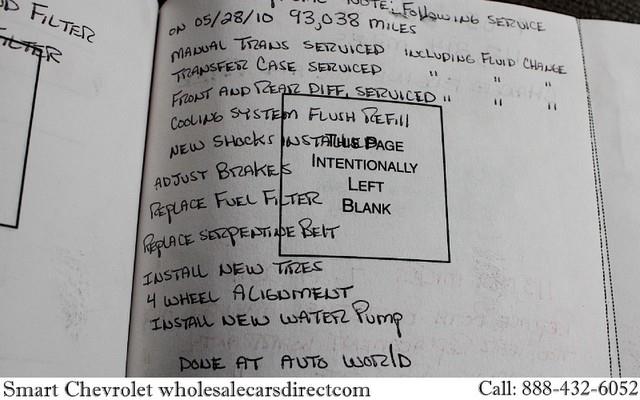 D FILTER
FILTER
NOTE: Following SERVICE
ON 05/28/10 93,038 MILES
MANUAL TRANS SERVICED INCLUDING FLUID CHANGE
TRANSFER CASE SERVICED " " "
FRONT AND REAR DIFF, SERVICED " " "
COOLING SYSTEM FLUSH REFILL
NEW SHOCKS INSTALLED
ADJUST BRAKES
REPLACE FUEL FILTER
REPLACE SERPENTINE BELT
INSTALL NEW TIRES
4 WHEEL ALIGNMENT
INSTALL NEW WATER PUMP
DONE AT AUTO WORLD
THIS PAGE
INTENTIONALLY
LEFT
BLANK
Smart Chevrolet wholesalecarsdirectcom Call: 888-432-6052